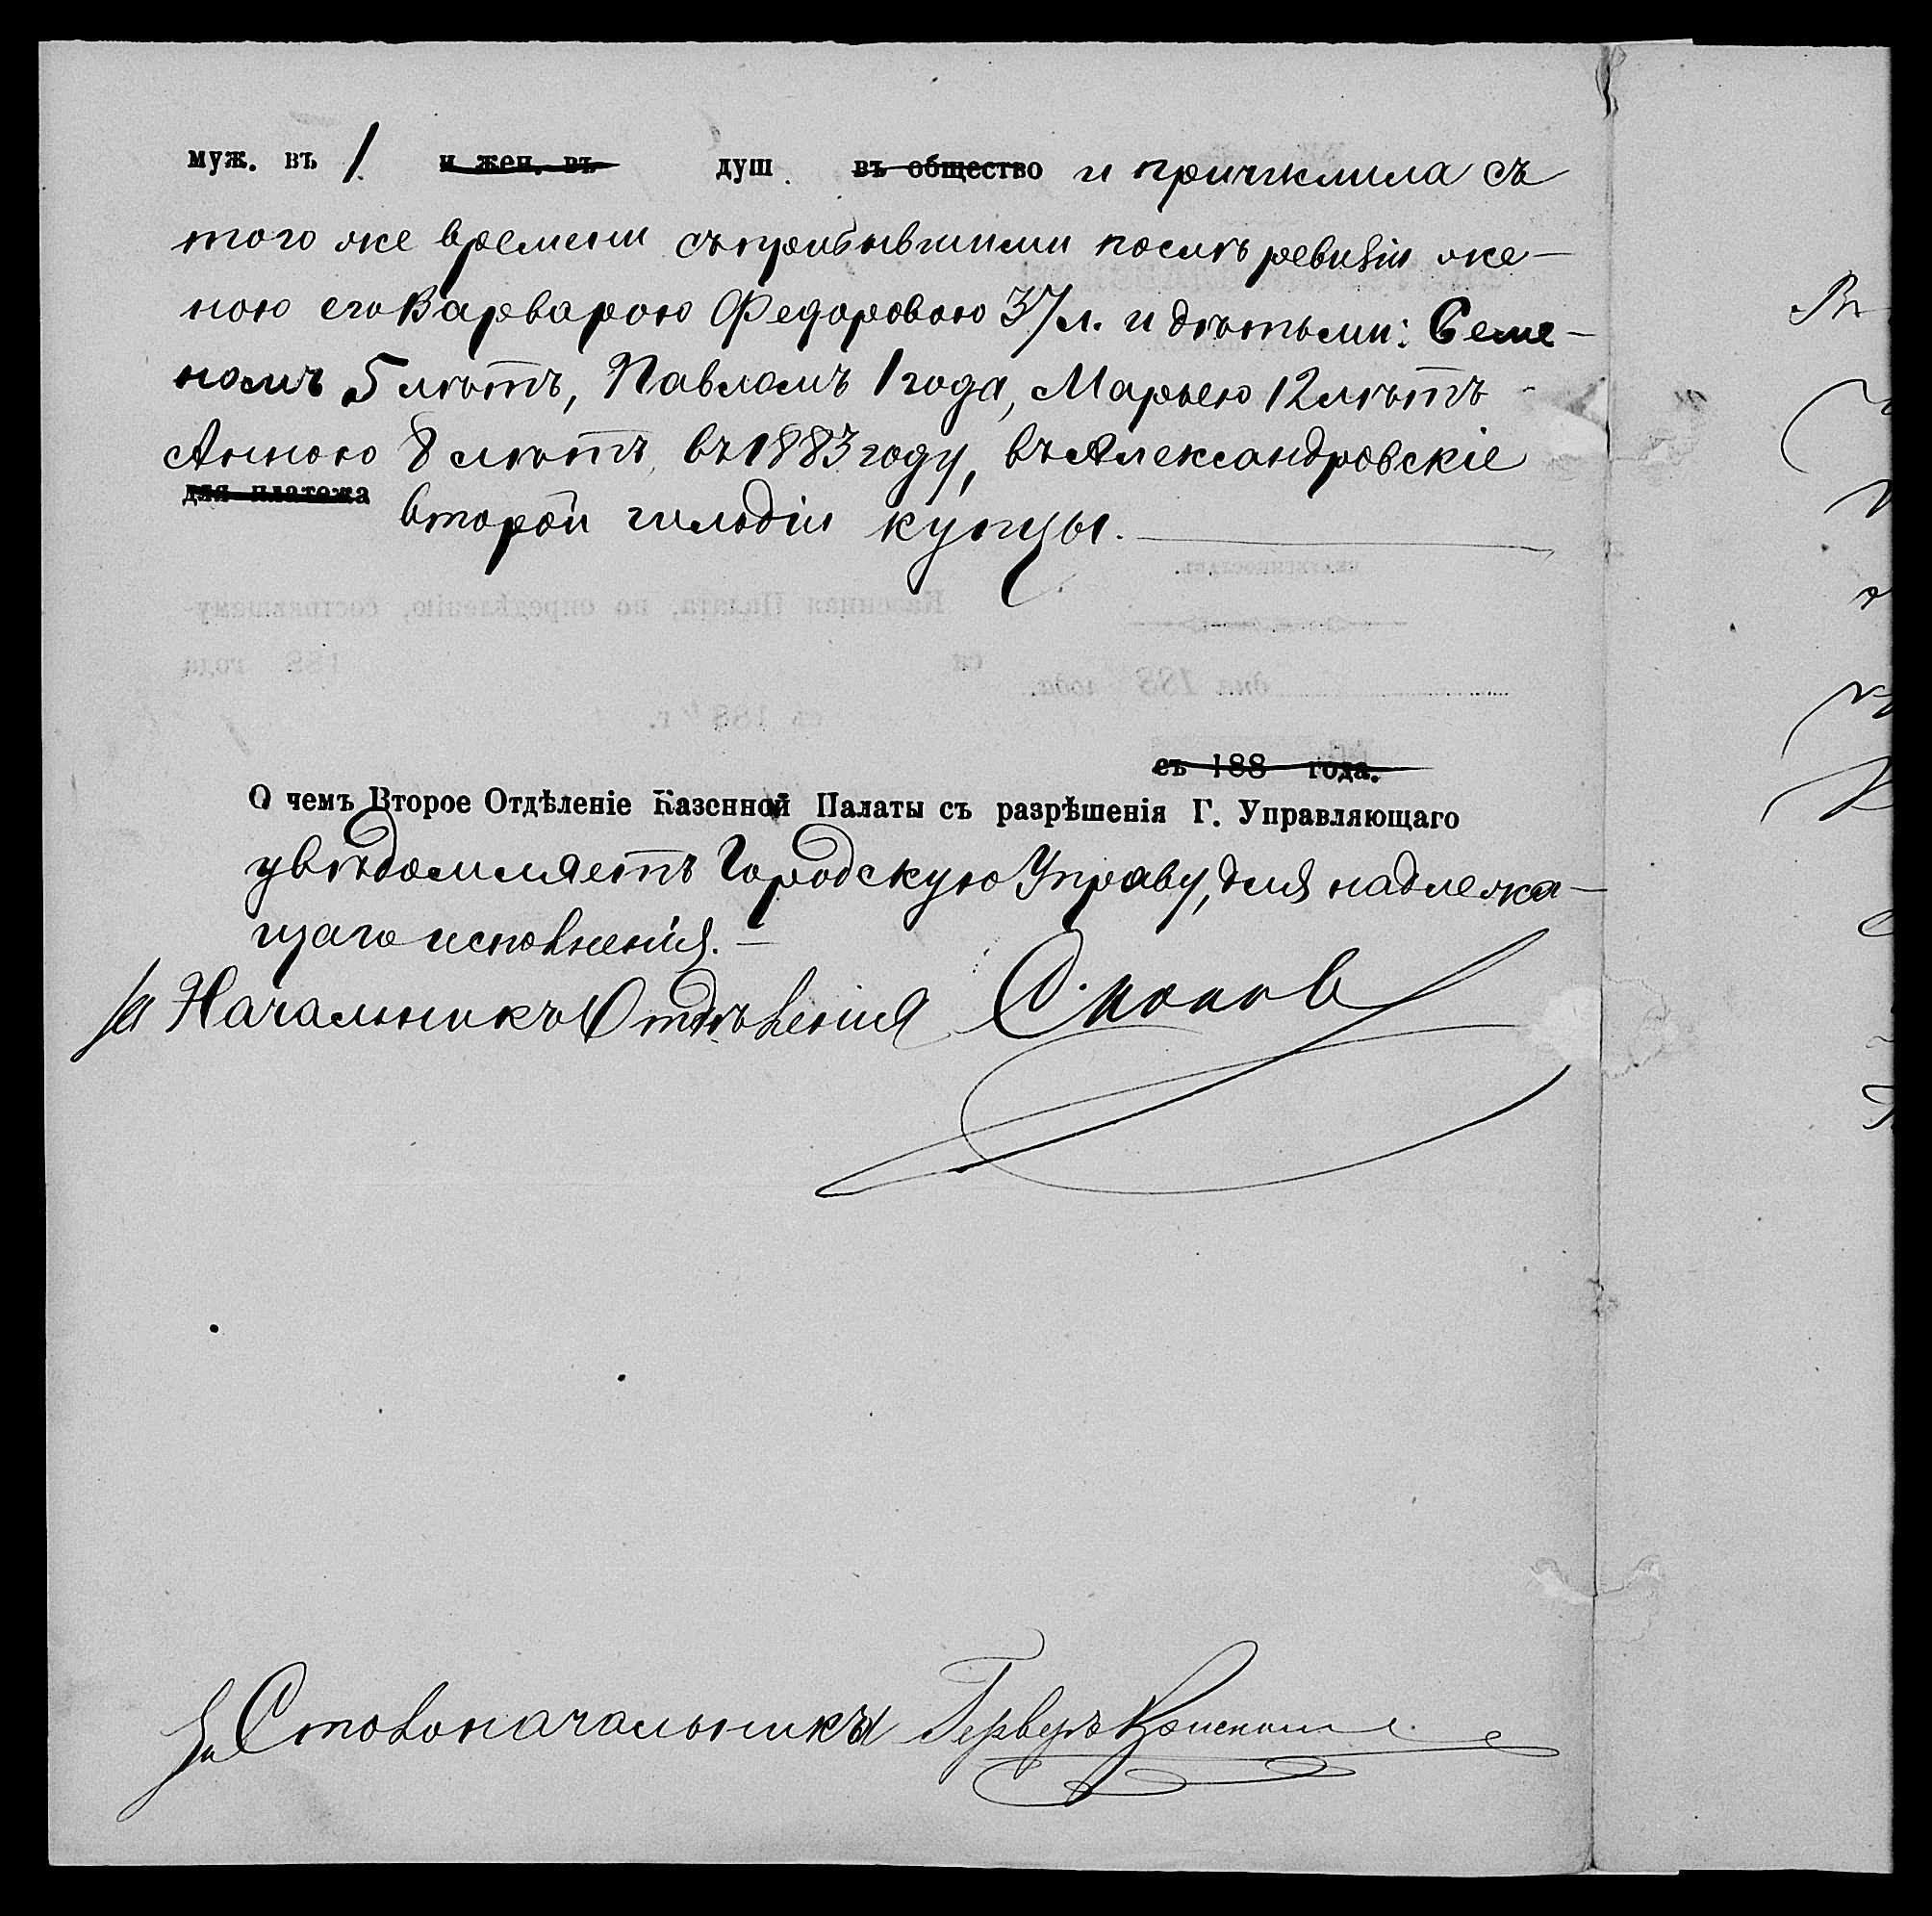 муж. въ 1. и жен. въ душ. въ общество и причислила съ
того же времени съ прибывшими послѣ ревизіи же-
ною его Варварою Федоровою 37 л. и дѣтьми: Семе-
номъ 5 лѣтъ, Павломъ 1 года, Марьею 12 лѣтъ
Анною 8 лѣтъ въ 1883 году, въ Александровскіе
для платежа
второй гильдіи купцы.
съ 188 года.
О чемъ Второе Отдѣленіе Казенной Палаты съ разрѣшенія Г. Управляющаго
увѣдомляетъ Городскую Управу, для надлежа-
щаго исполненія.
За Начальникъ Отдѣленія
За Столоначальника